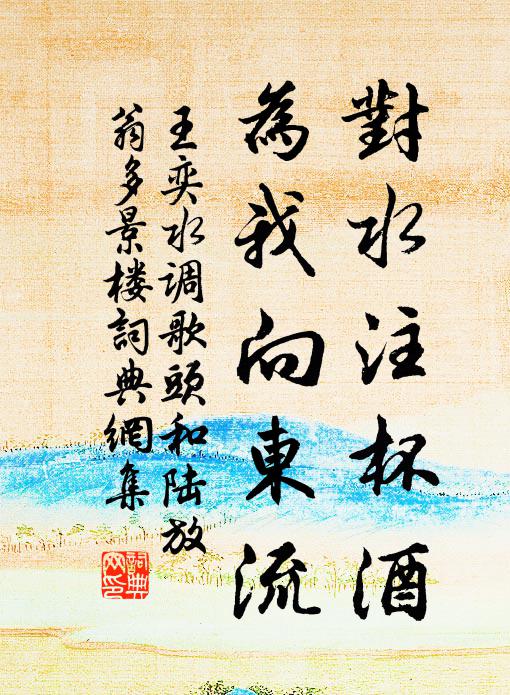 對水注杯酒
為我向東流
王奕水调歌頭和陆放
翁多景楼詞典網集
詞典文印